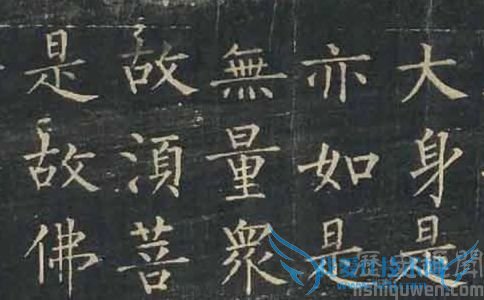 大身是
亦如是
無量眾
故湏菩
是故佛
lishiquwen.com